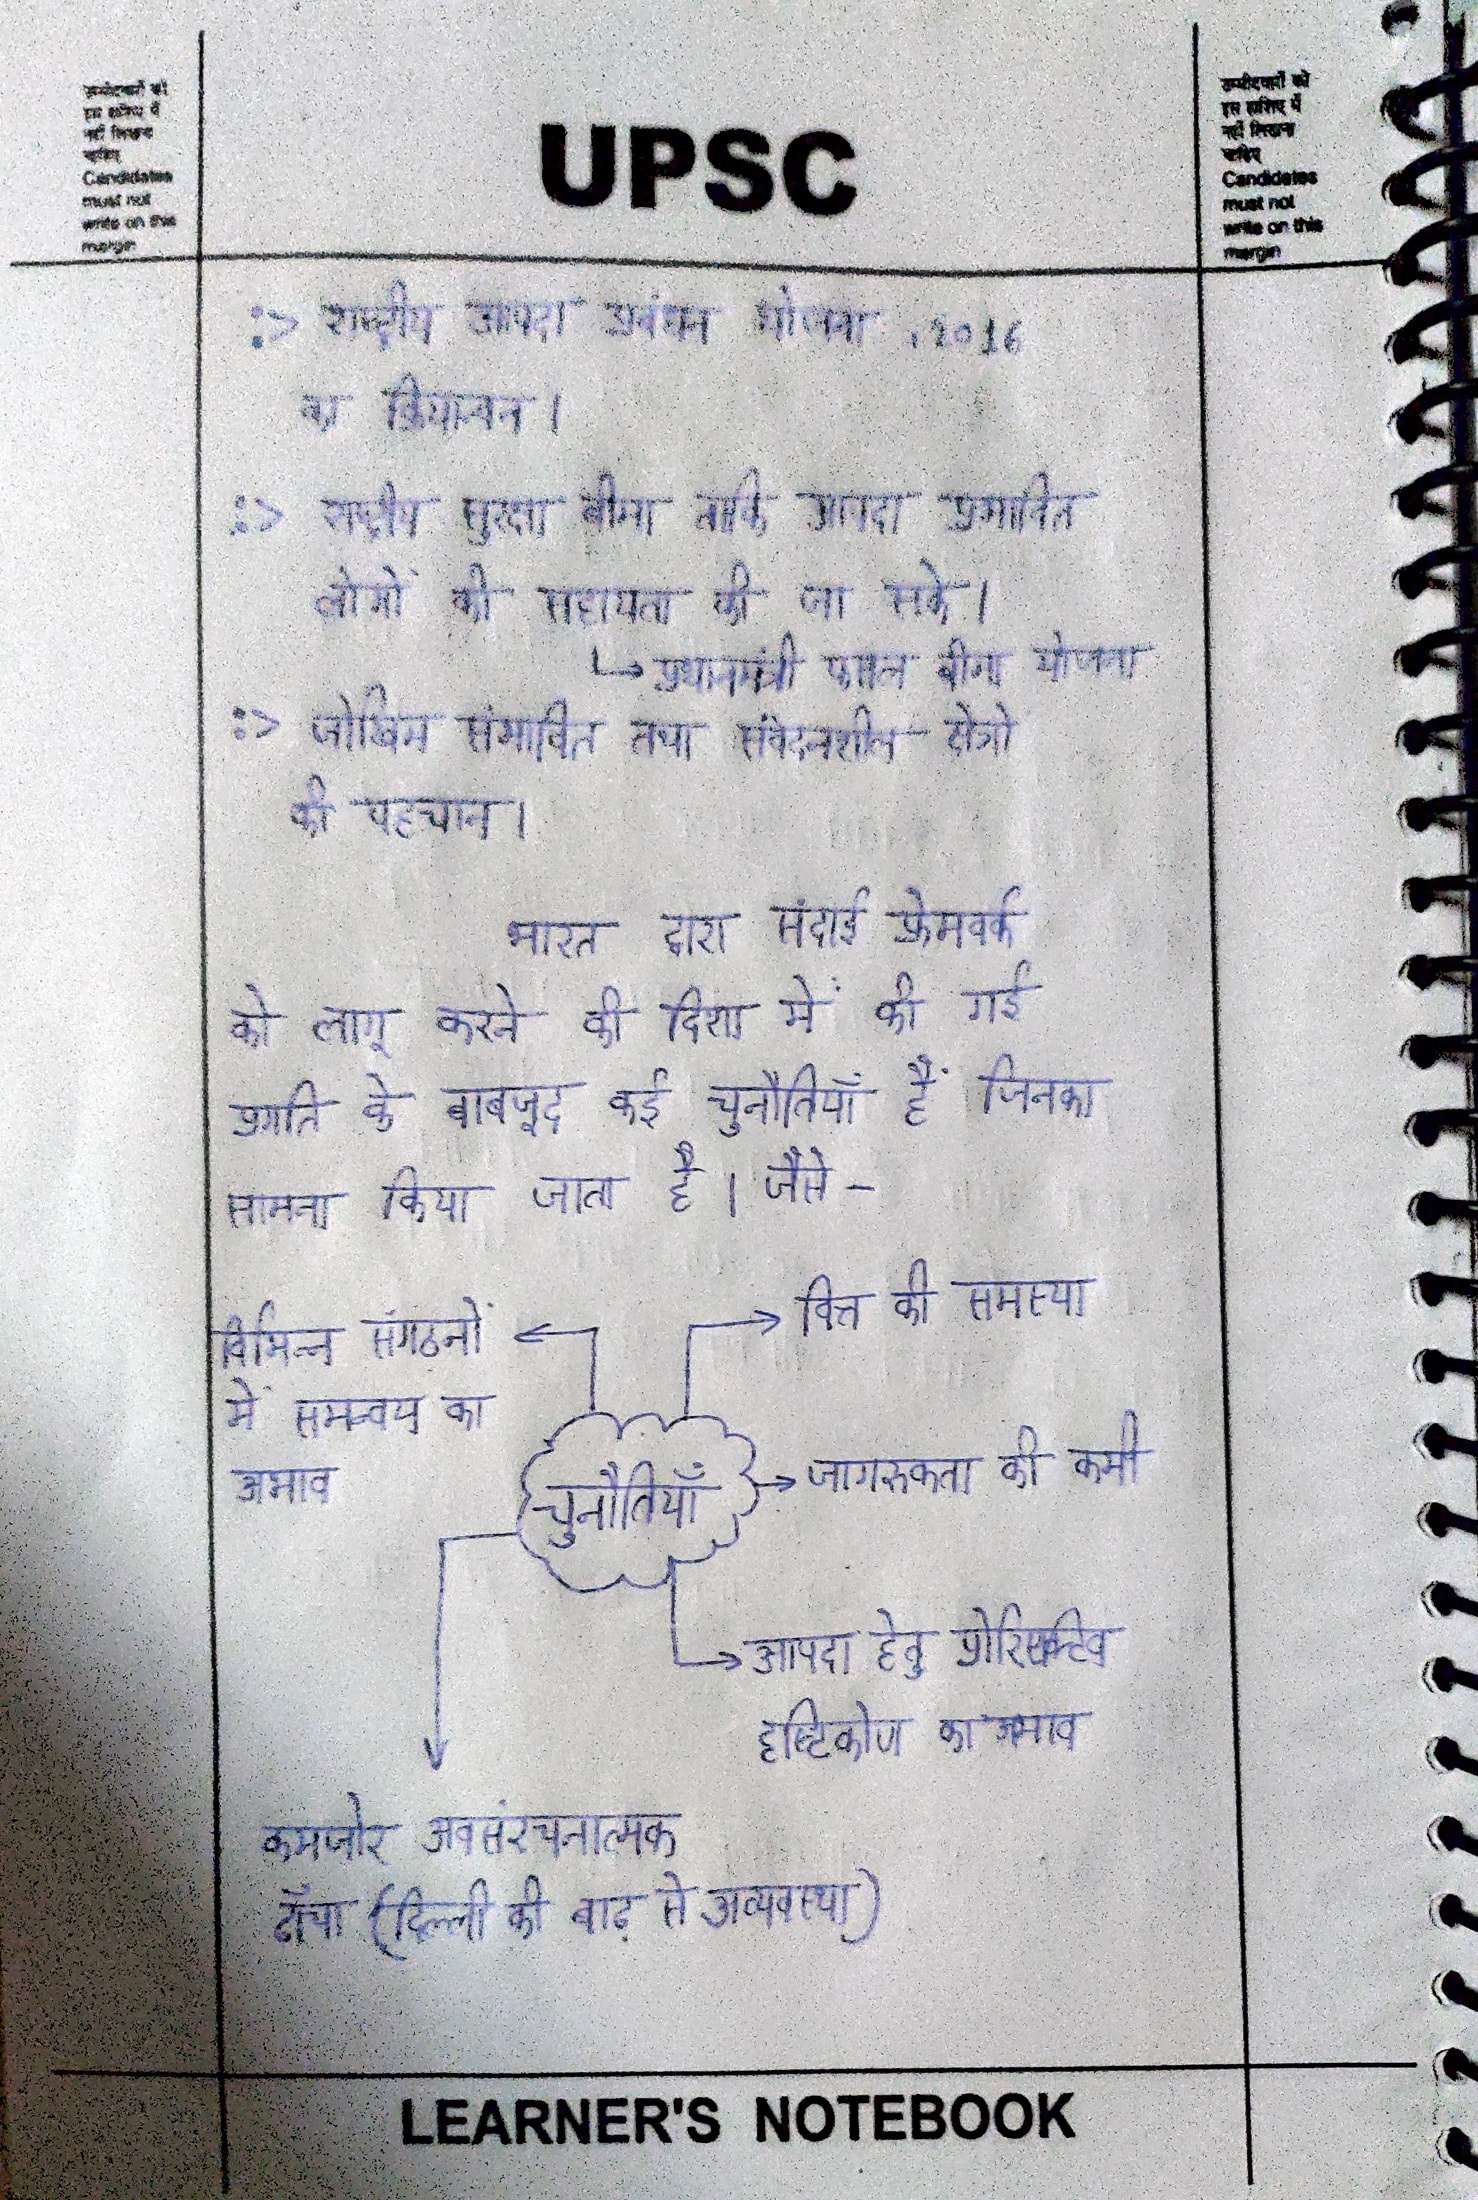 उम्मीदवारों को
इस हाशिए में
नहीं लिखना
चाहिए
Candidates
must not
write on this
margin
UPSC
उम्मीदवारों को
इस हाशिए में
नहीं लिखना
चाहिए
Candidates
must not
write on this
margin
:> राष्ट्रीय आपदा प्रबंधन योजना, 2016
का क्रियान्वन।
:> राष्ट्रीय सुरक्षा बीमा ताकि आपदा प्रभावित
लोगों की सहायता की जा सके।
↳ प्रधानमंत्री फसल बीमा योजना
:> जोखिम संभावित तथा संवेदनशील क्षेत्रो
की पहचान।
भारत द्वारा सेंदाई फ्रेमवर्क
को लागू करने की दिशा में की गई
प्रगति के बाबजूद कई चुनौतियाँ हैं जिनका
सामना किया जाता है। जैसे -
विभिन्न संगठनों
में समन्वय का
अभाव
वित्त की समस्या
चुनौतियाँ
जागरुकता की कमी
आपदा हेतु प्रोएक्टिव
दृष्टिकोण का अभाव
कमजोर अवसंरचनात्मक
ढाँचा (दिल्ली की बाढ़ से अव्यवस्था)
LEARNER'S NOTEBOOK